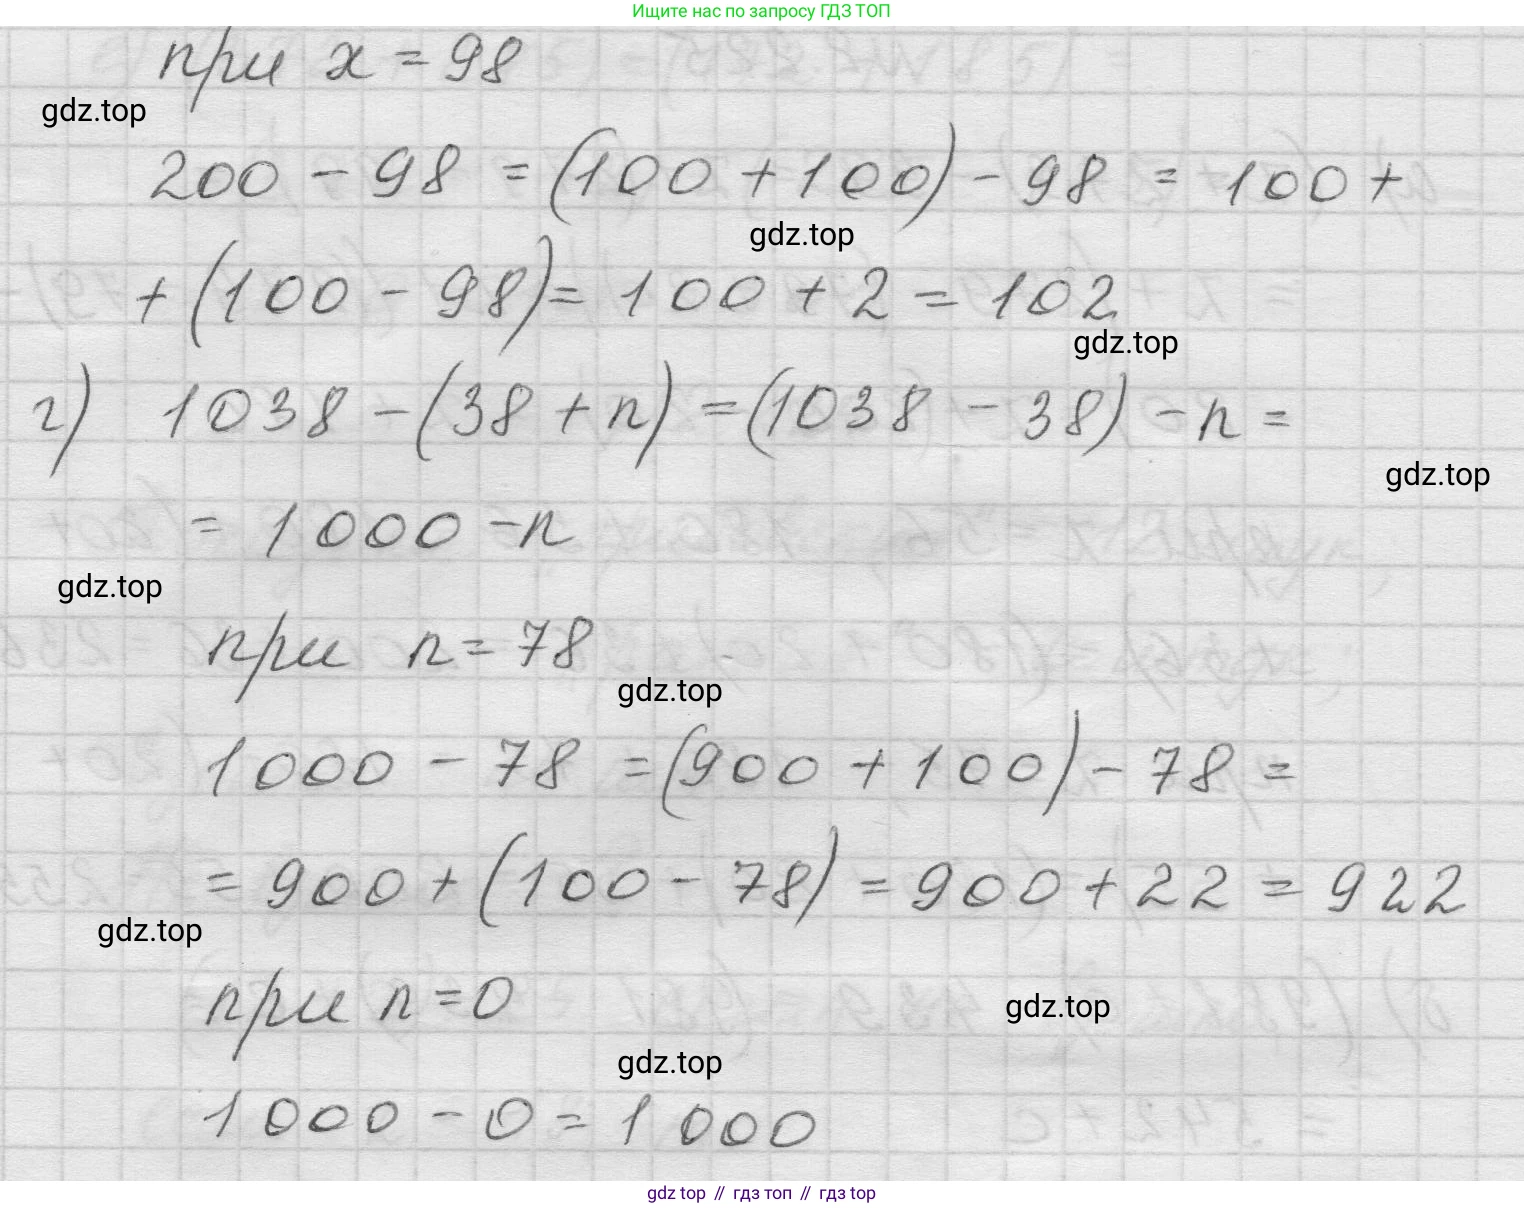 Ищите нас по запросу ГДЗ ТОП
при x = 98
gdz.top
200 - 98 = (100 + 100) - 98 = 100 +
gdz.top
+ (100 - 98) = 100 + 2 = 102
gdz.top
г) 1038 - (38 + n) = (1038 - 38) - n =
gdz.top
= 1000 - n
gdz.top
при n = 78
gdz.top
1000 - 78 = (900 + 100) - 78 =
= 900 + (100 - 78) = 900 + 22 = 922
gdz.top
при n = 0
gdz.top
gdz.top
1000 - 0 = 1000
gdz top // гдз топ // гдз top